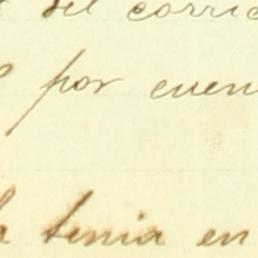 del corric
por cuen
tenia en